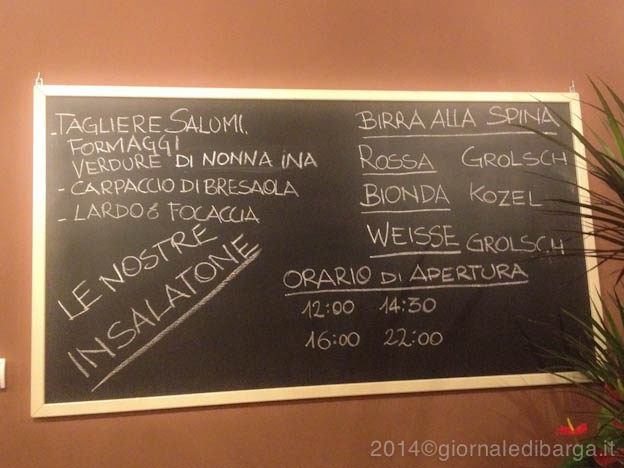 - TAGLIERE SALUMI,
FORMAGGI
VERDURE DI NONNA INA
- CARPACCIO DI BRESAOLA
- LARDO E FOCACCIA
LE NOSTRE
INSALATONE
BIRRA ALLA SPINA
ROSSA GROLSCH
BIONDA KOZEL
WEISSE GROLSCH
ORARIO DI APERTURA
12:00 14:30
16:00 22:00
2014©giornaledibarga.it